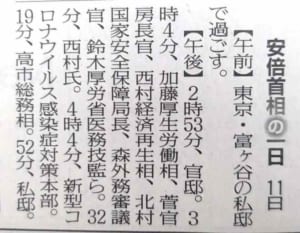 安倍首相の一日 11日
【午前】東京・富ヶ谷の私邸
で過ごす。
【午後】2時53分、官邸。3
時4分、加藤厚生労働相、菅官
房長官、西村経済再生相、北村
国家安全保障局長、森外務審議
官、鈴木厚労省医務技監ら。32
分、西村氏。4時4分、新型コ
ロナウイルス感染症対策本部。
19分、高市総務相。52分、私邸。